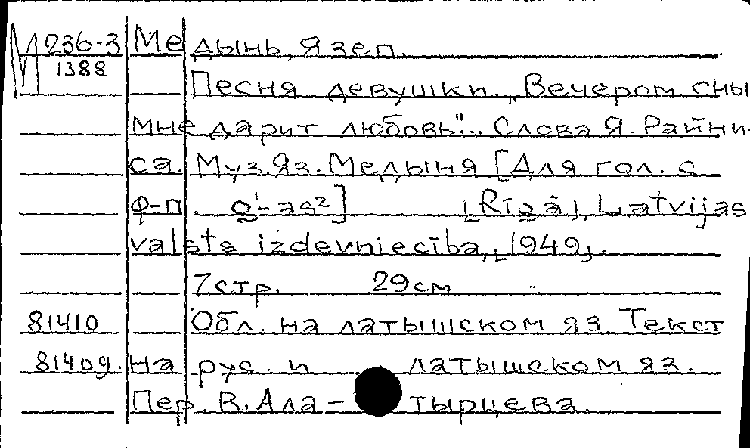 М 236-3 Медынь, Язеп.
1388
Песня девушки „Вечером сны
мне дарит любовь". Слова Я. Райни-
са. Муз. Яз. Медыня [Для гол. с
ф-п.] [Rīgā], Latvijas
valsts izdevniecība, [1949].
7 стр. 29 см
81410 Обл. на латышском яз. Текст
81409. на рус. и латышском яз.
Пер. В. Ала- тырцева.